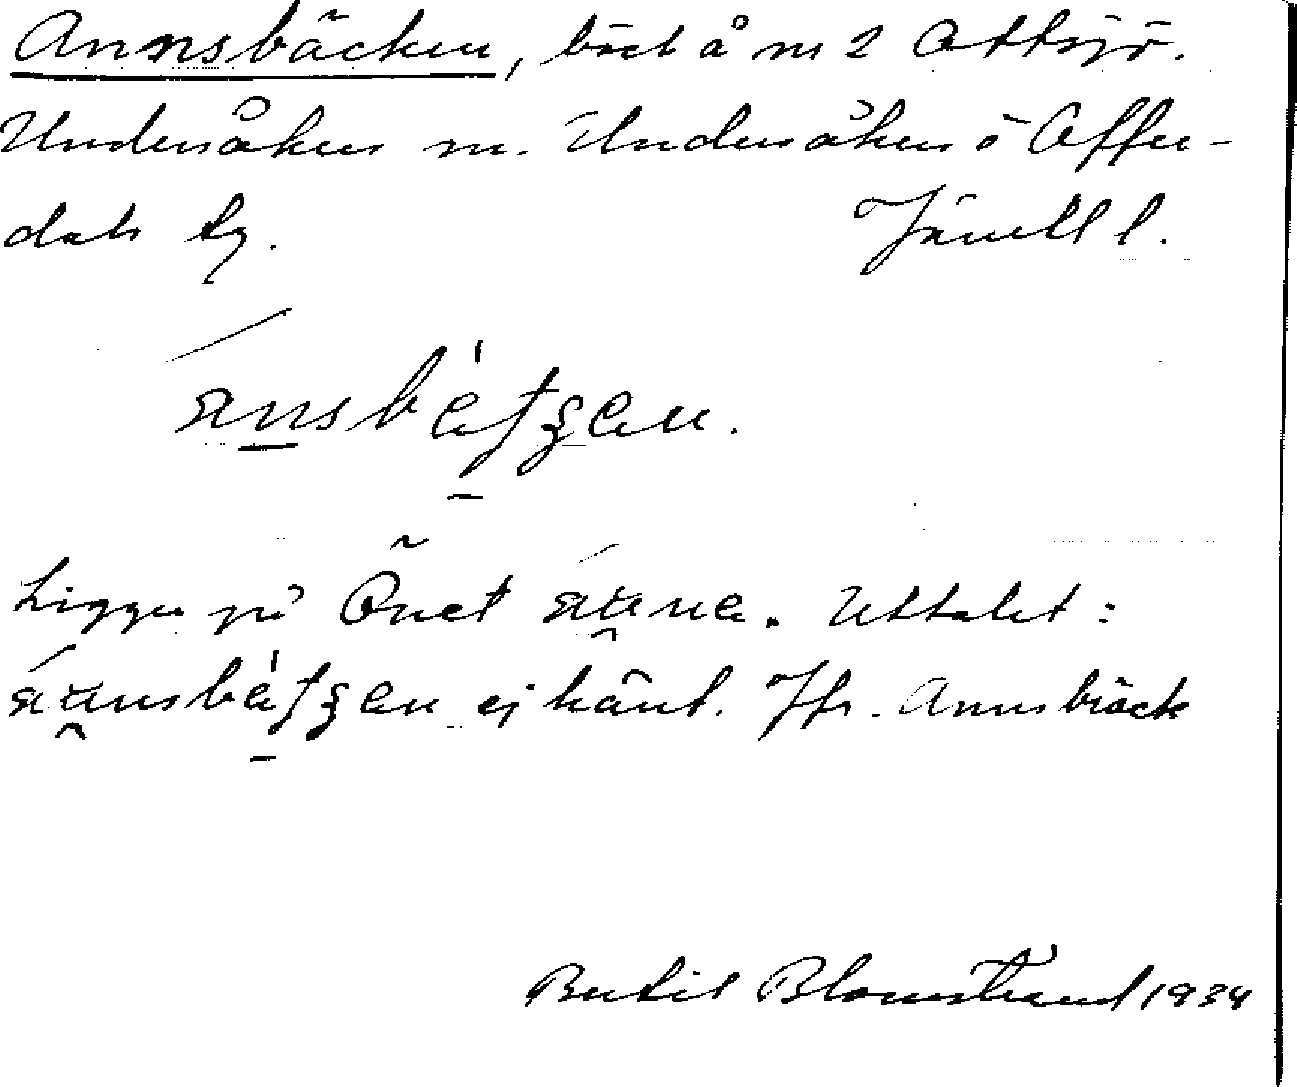 Annsbäcken, bäck å nr 2 Ottsjö.
Undersåkers sn. Undersåkers o Offer-
dals tg. Jämtl l.
ansbetʃen.
Ligger på Önet. Uttalet:
ej känt. Jfr. Annsbäck
Bertil Blomstrand 1934